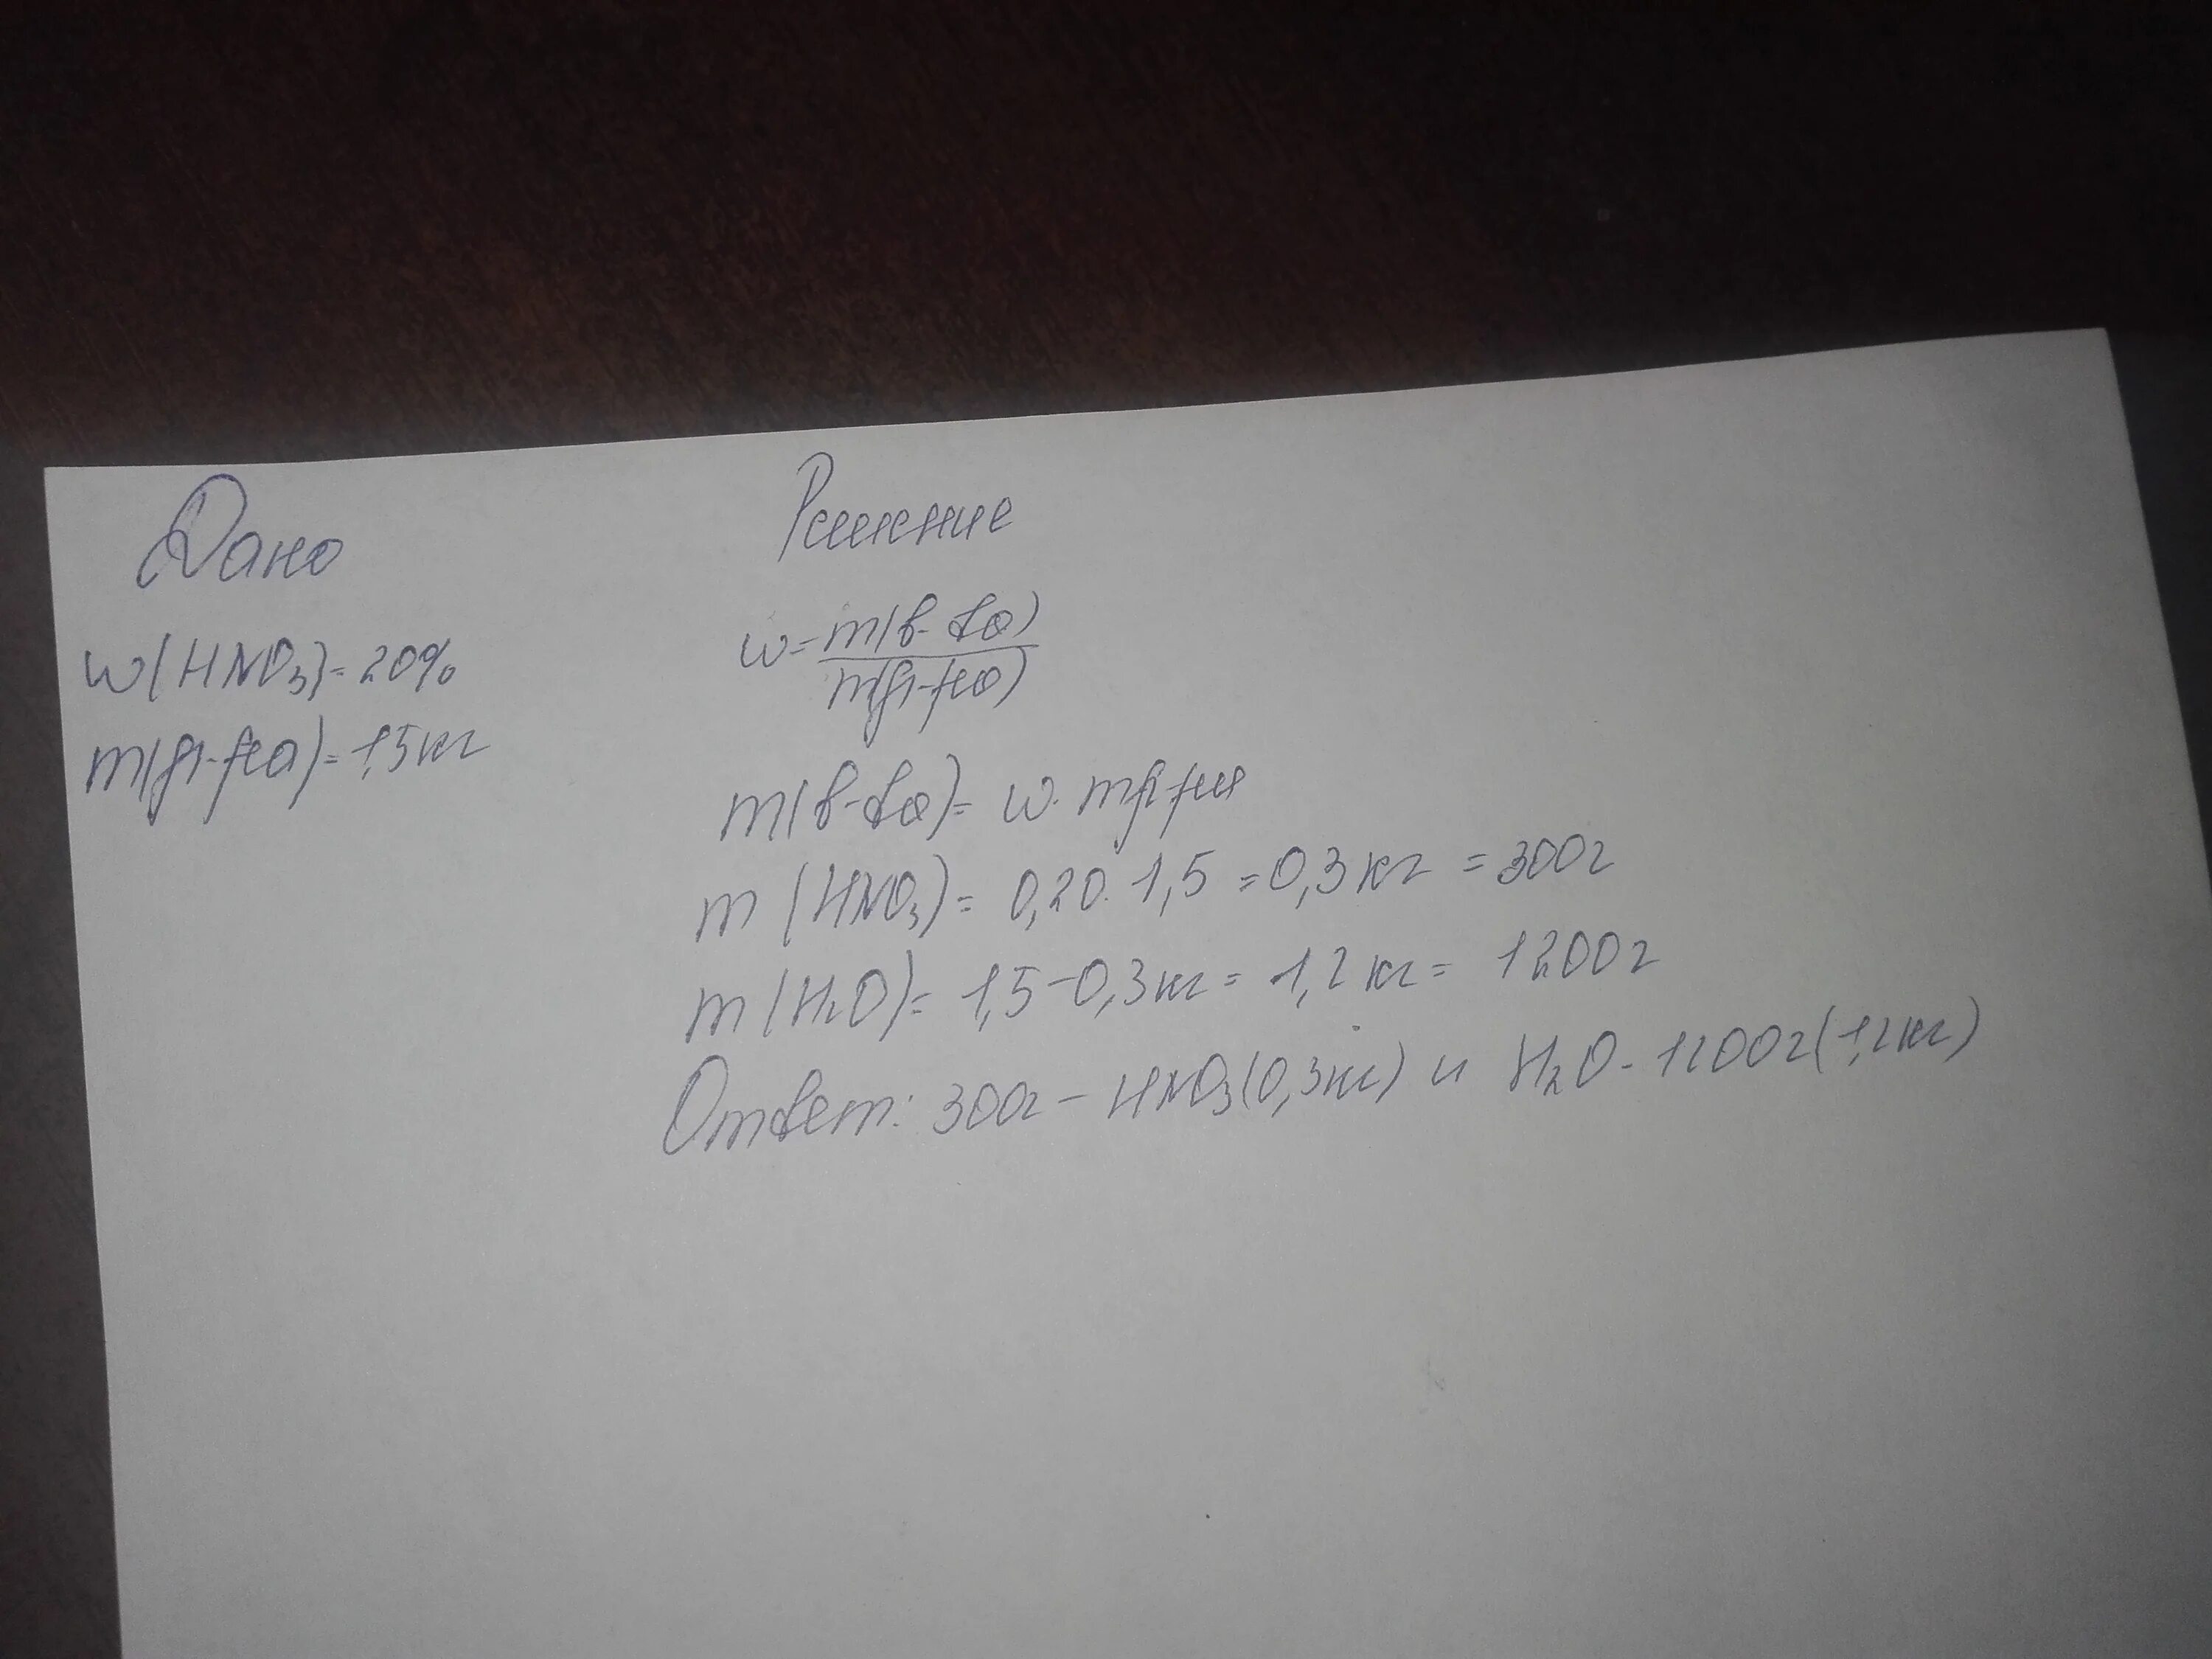 Дано
w(HNO3)=20%
m(р-ра)=1,5кг
Решение
w=m(в-ва)
m(р-ра)
m(в-ва)= w·mр-ра
m (HNO3)= 0,20·1,5=0,3кг =300г
m(H2O)= 1,5-0,3кг= 1,2кг= 1200г
Ответ: 300г-HNO3(0,3кг) и H2O-1200г(1,2кг)